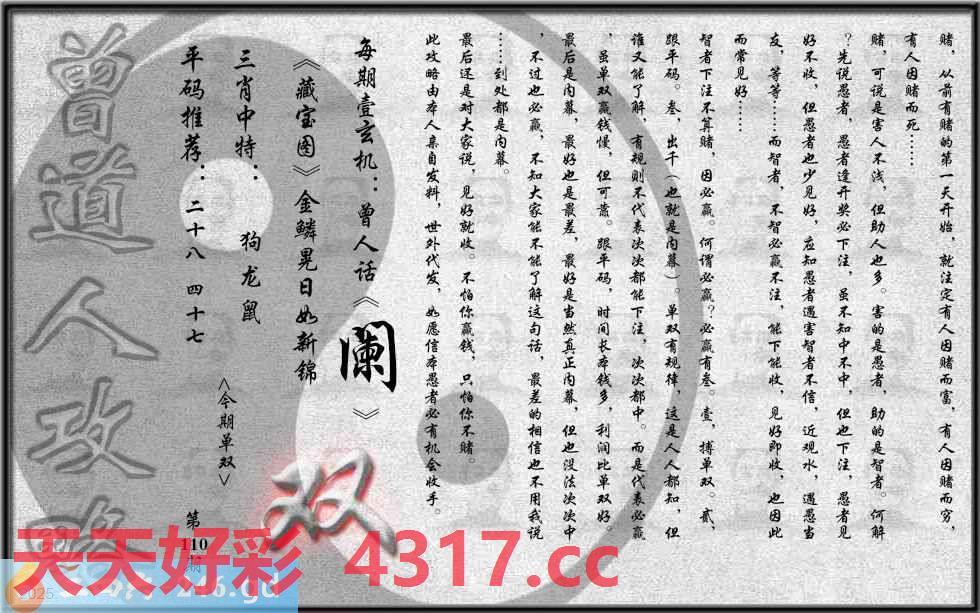 赌，从前有赌的第一天开始，就注定有人因赌而富，有人因赌而穷，
有人因赌而死……
赌，可说是害人不浅，但助人也多。害的是愚者，助的是智者。何解
？先说愚者，愚者逢开奖必下注，虽不知中不中，但也下注，愚者见
好不收，但愚者也少见好，应知愚者遇害智者不信，近观水，遇愚当
友，等等……而智者，不智必赢不注，能下能收，见好即收，也因此
而常见好……
智者下注不算赌，因必赢。何谓必赢？必赢有叁。壹，搏单双。贰，
跟平码。叁，出千（也就是内幕）。单双有规律，这是人人都知，但
谁又能了解，有规则不代表次次都能下注，次次都中。而是代表必赢
，虽单双赢钱慢，但可靠。跟平码，时间长本钱多，利润比单双好。
最后是内幕，最好也是最差，最好是当然真正内幕，但也没法次次中
，不过也必赢，不知大家能不能了解这句话，最差的相信也不用我说
……到处都是内幕。
最后还是对大家说，见好就收。不怕你赢钱，只怕你不赌。
此攻略由本人亲自发料，世外代发，如愿信本愚者必有机会收手。
每期壹玄机：曾人话《澜》
《藏宝图》金鳞晃日如新锦
三肖中特：狗龙鼠
<今期单双>
双
平码推荐：二十八 四十七
第110期
曾道人攻略
天天好彩 4317.cc
2025
246.gd